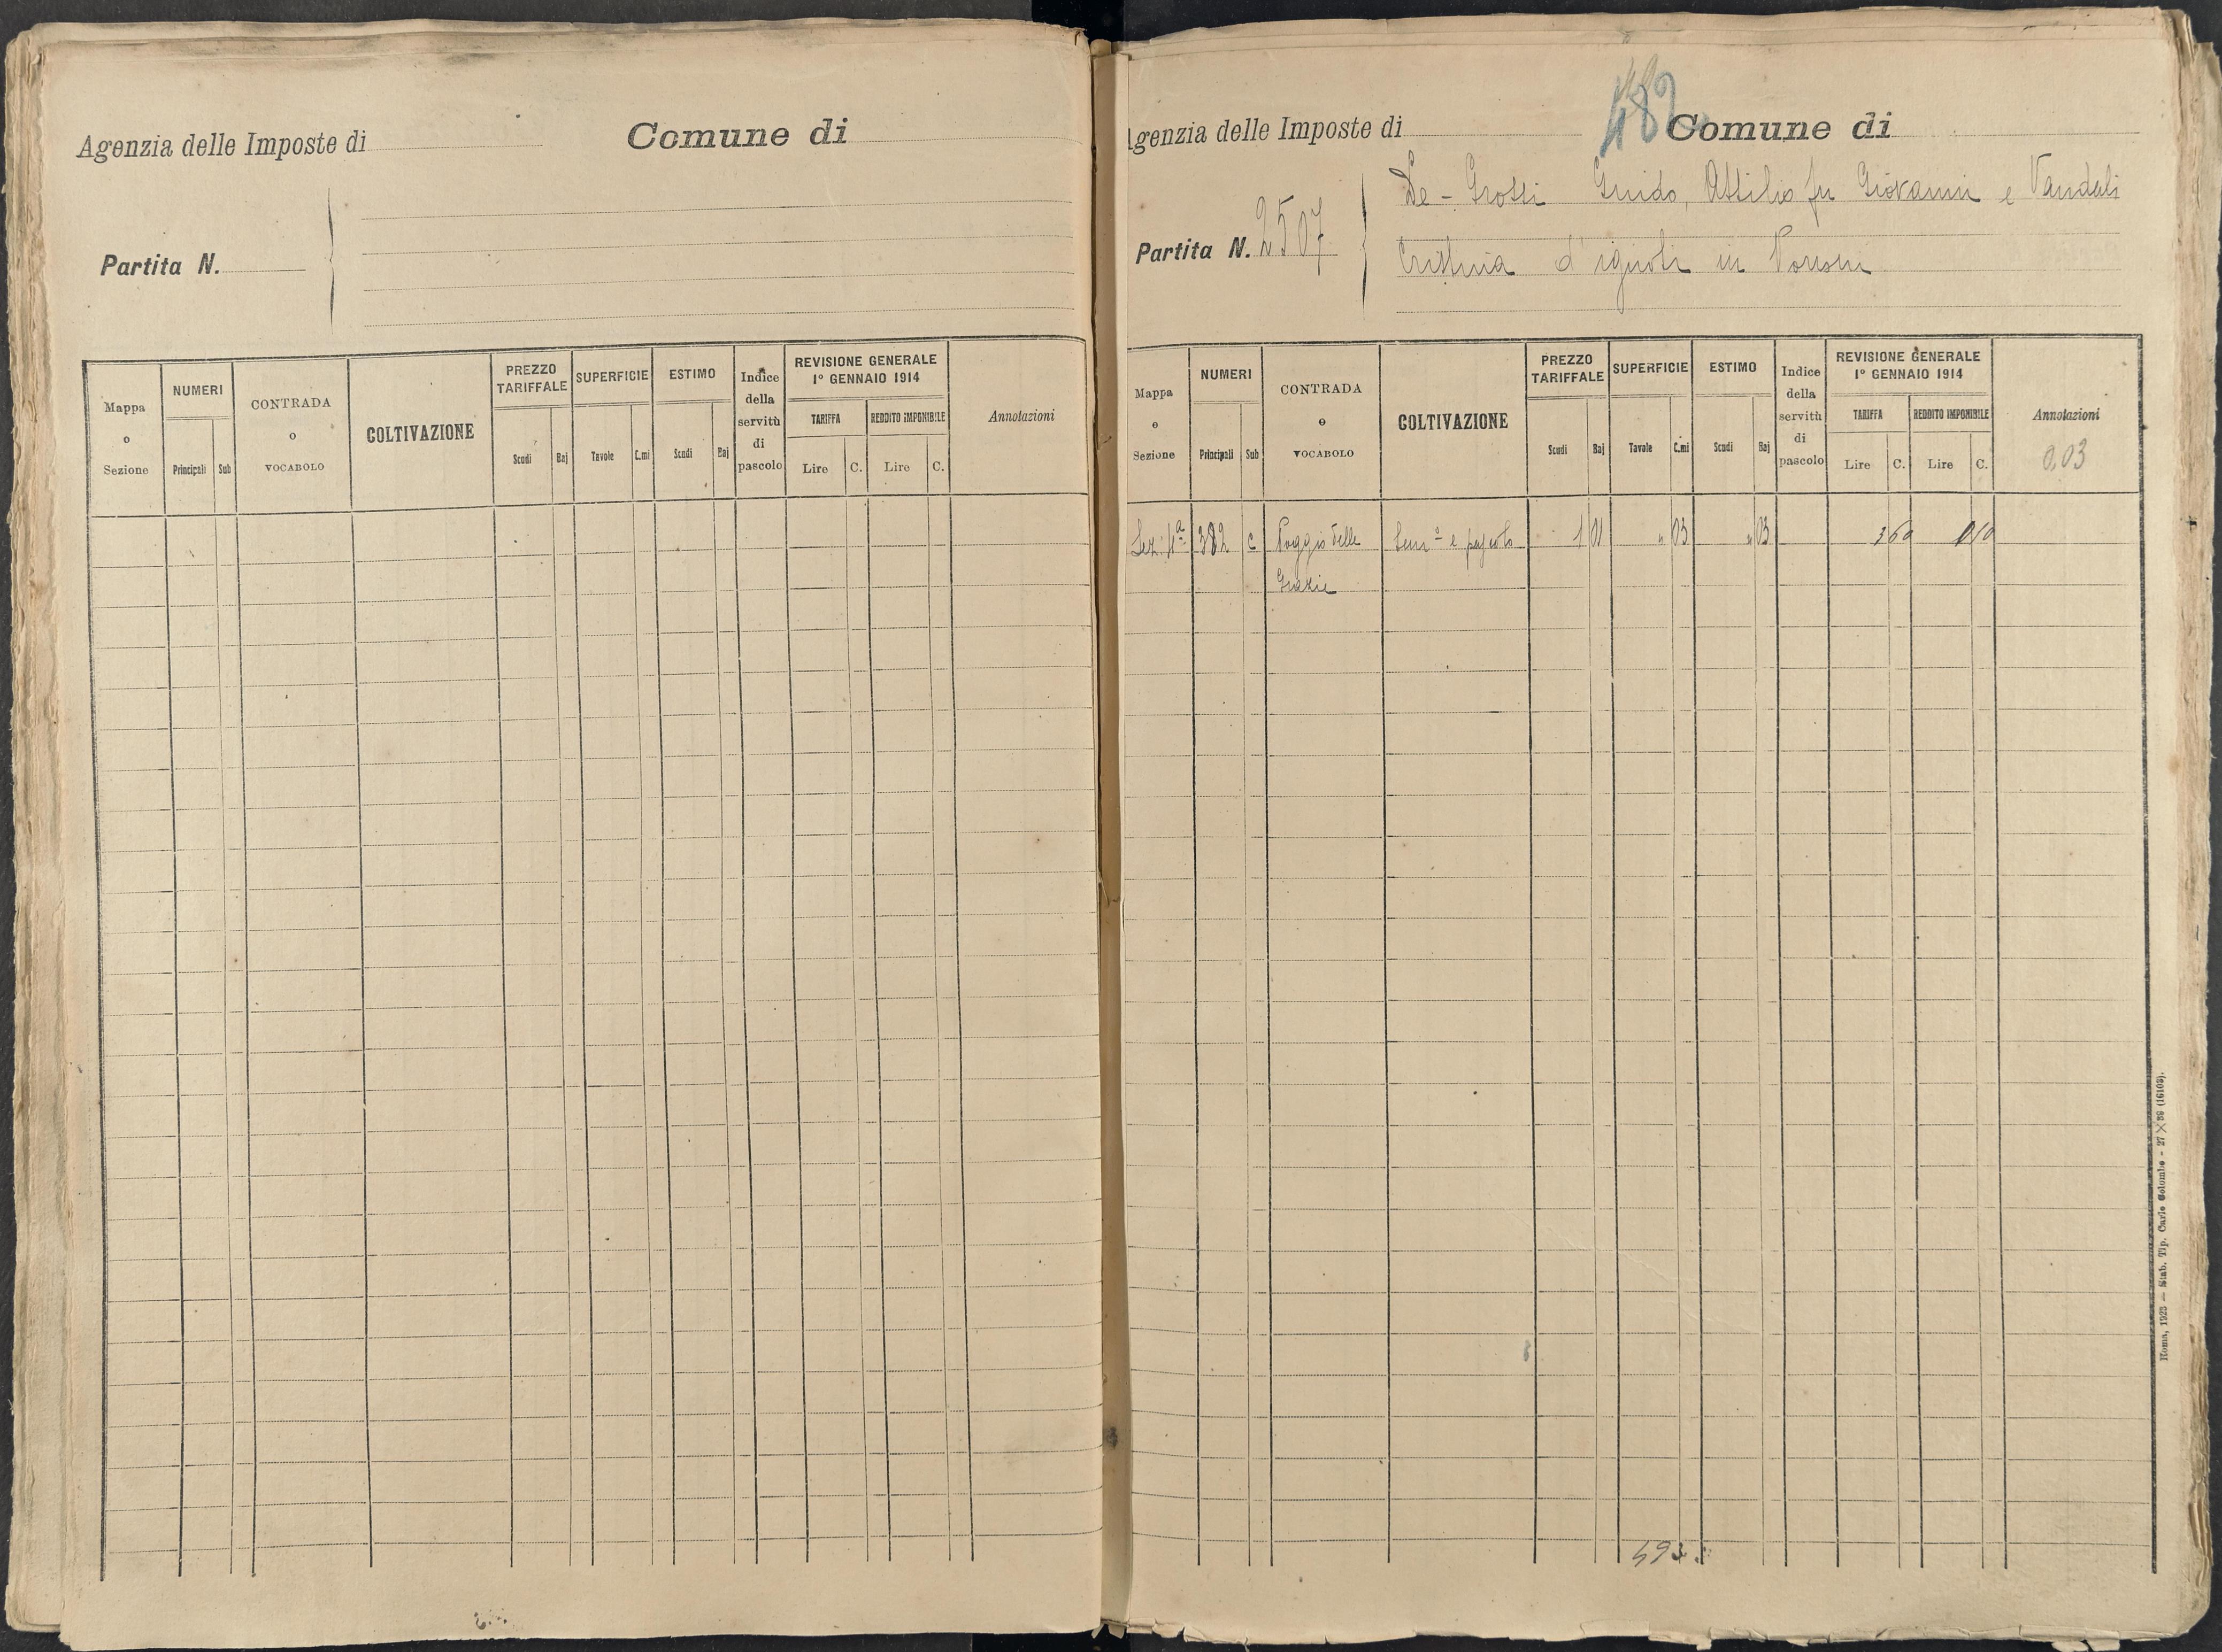 Agenzia delle Imposte di Comune di
Partita N.
Mappa o Sezione
NUMERI
Principali Sub
CONTRADA o VOCABOLO
COLTIVAZIONE
PREZZO TARIFFALE
Scudi Baj
SUPERFICIE
Tavole C.mi
ESTIMO
Scudi Baj
Indice della servitù di pascolo
REVISIONE GENERALE
1º GENNAIO 1914
TARIFFA REDDITO IMPONIBILE
Lire C. Lire C.
Annotazioni
482
Agenzia delle Imposte di Comune di
De-Grossi Guido, Attilio fu Giovanni e Vandali
Partita N. 2507
Cristina d'ignoti in
Mappa o Sezione
NUMERI
Principali Sub
CONTRADA o VOCABOLO
COLTIVAZIONE
PREZZO TARIFFALE
Scudi Baj
SUPERFICIE
Tavole C.mi
ESTIMO
Scudi Baj
Indice della servitù di pascolo
REVISIONE GENERALE
1º GENNAIO 1914
TARIFFA REDDITO IMPONIBILE
Lire C. Lire C.
Annotazioni
0,03
Sez. 1ª 382 c Poggio delle Sem.º e pascolo 1 01 " 03 " 03 360 010
Grazie
493
Roma, 1923 — Stab. Tip. Carlo Colombo - 27 × 39 (16103).